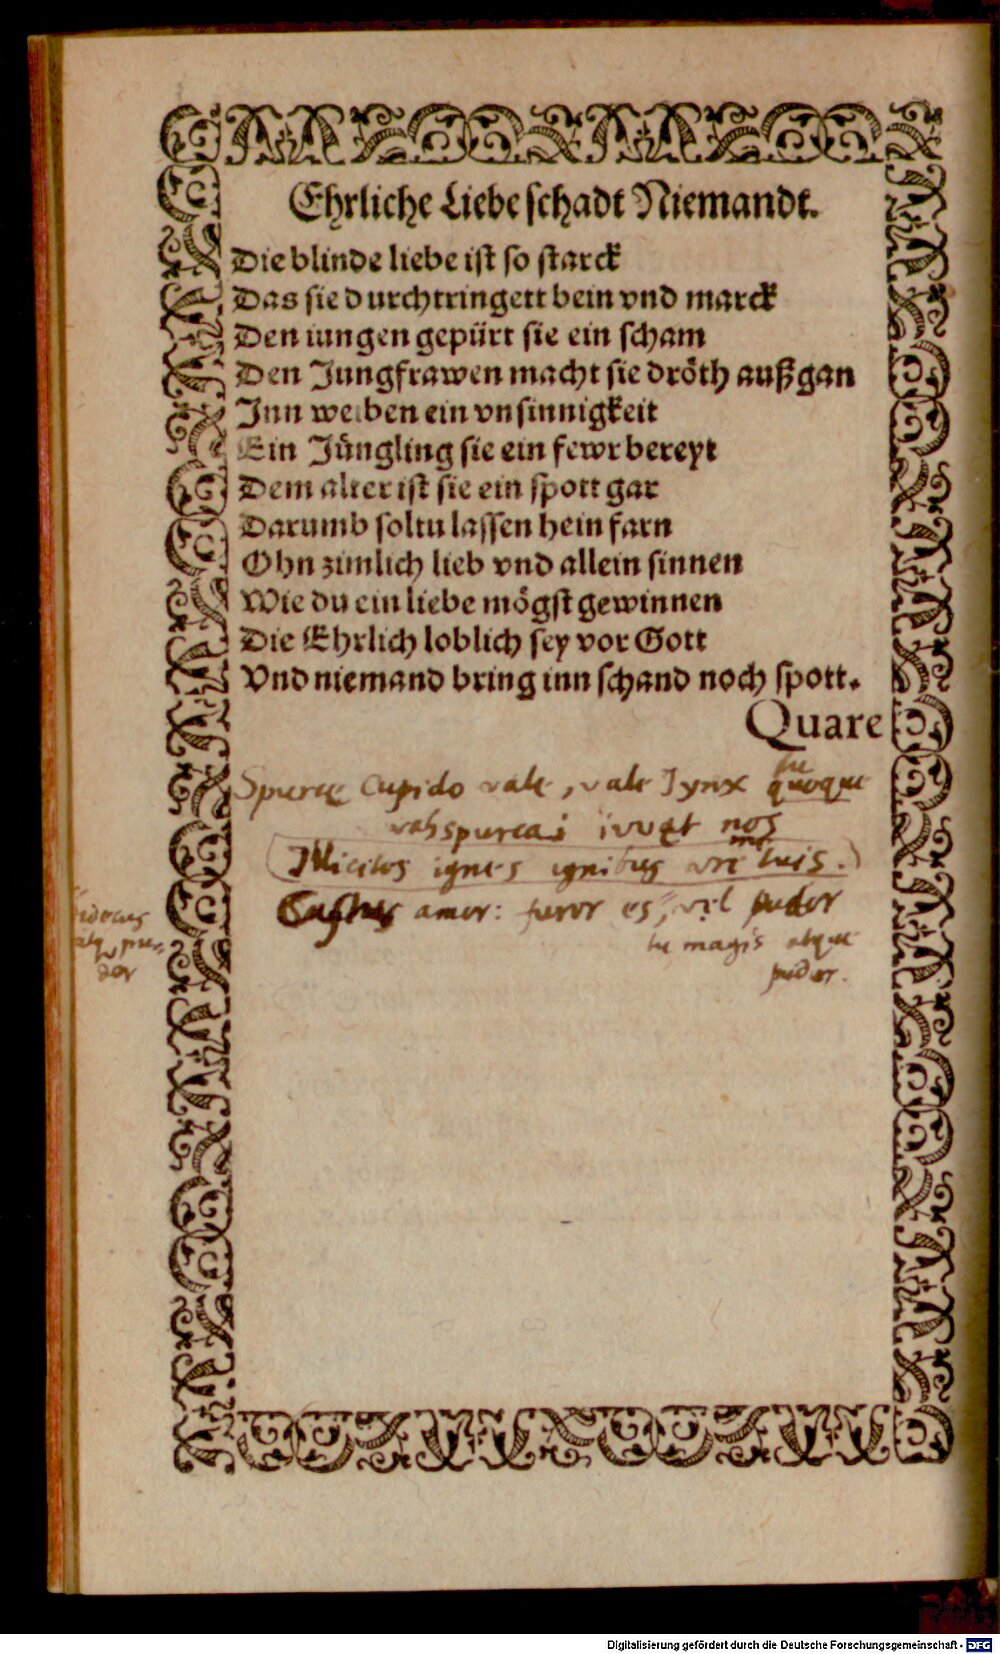 Ehrliche Liebe schadt Niemandt.
Die blinde liebe ist so starck
Das sie durchtringett bein vnd marck
Den iungen gepürt sie ein scham
Den Jungfrawen macht sie dröth außgan
Jnn weiben ein vnsinnigkeit
Ein Jüngling sie ein fewr bereyt
Dem alter ist sie ein spott gar
Darumb soltu lassen hein farn
Ohn zimlich lieb vnd allein sinnen
Wie du ein liebe mögst gewinnen
Die Ehrlich loblich sey vor Gott
Vnd niemand bring inn schand noch spott.
Quare
tu
Spurce Cupido vale, vale Jynx quoque
spurca iuuat nos
me
Illicitos ignes ignibus tuis.
Castus amor: furor es, vel pudor
tu magis atque
pudor.
Digitalisierung gefördert durch die Deutsche Forschungsgemeinschaft - DFG